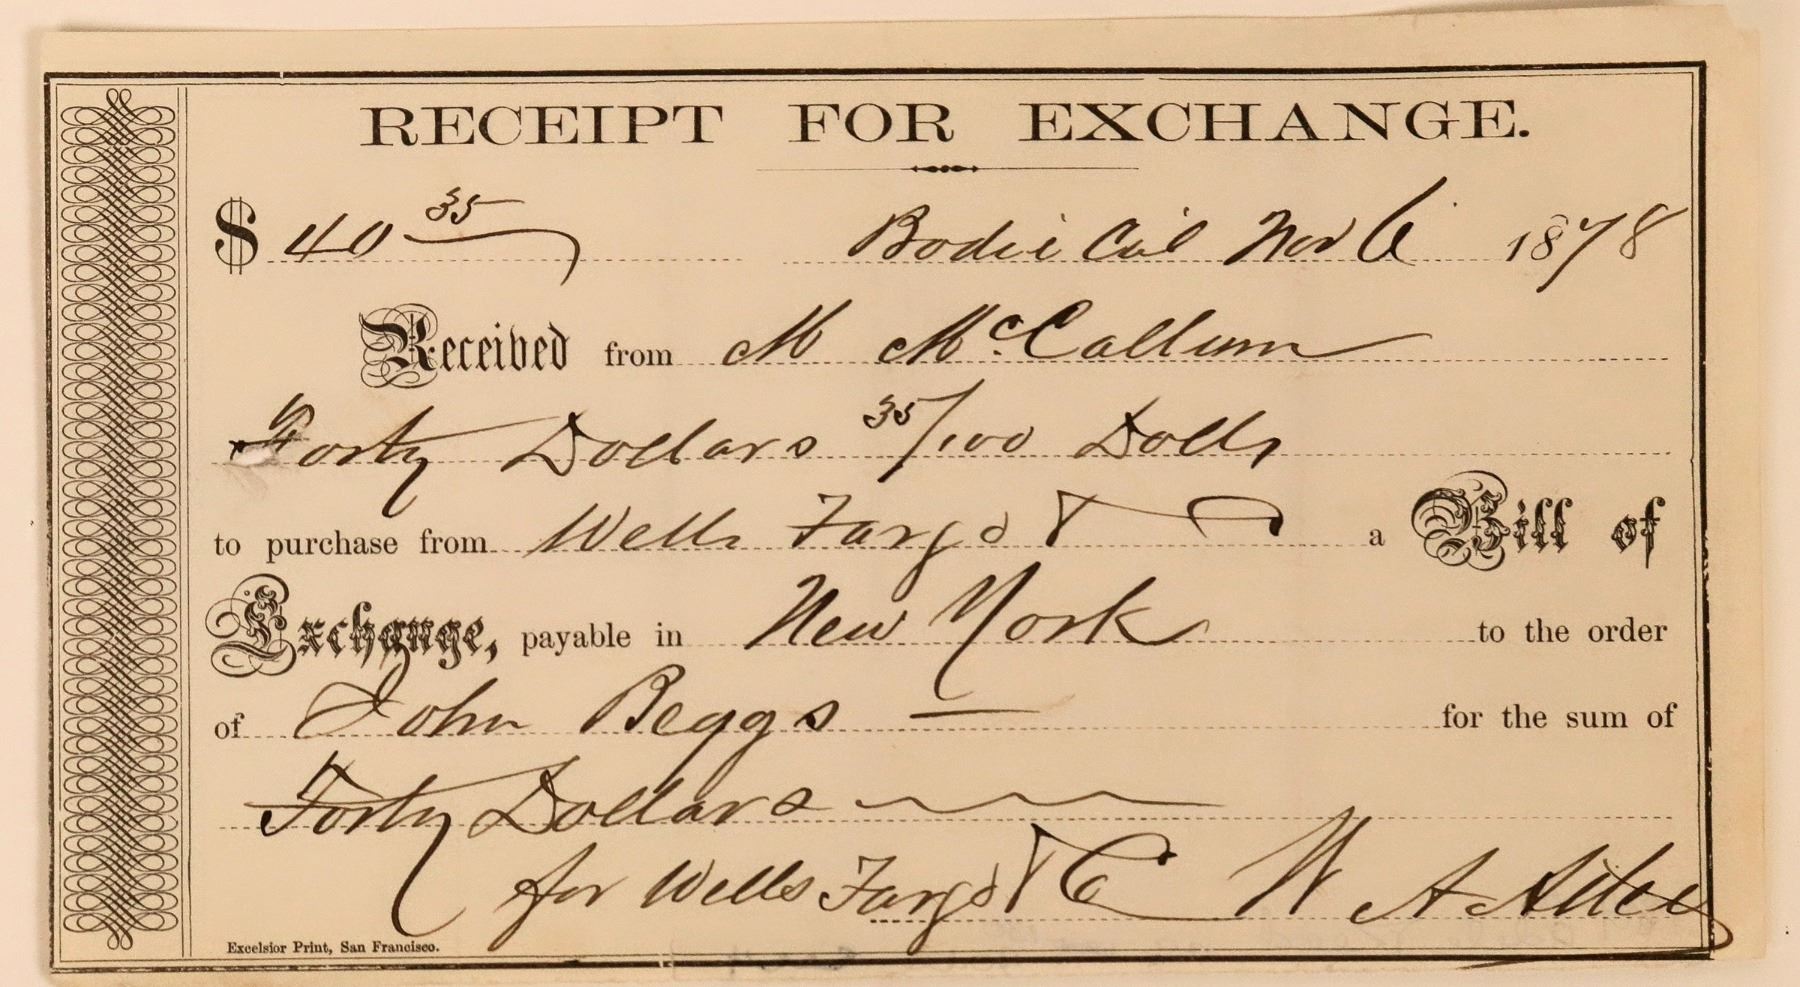 RECEIPT FOR EXCHANGE.
$ 40 35 Bodie Cal Nov 6 1878
Received from M McCallum
Forty Dollars 35/100 Dolls
to purchase from Wells Fargo & C a Bill of
Exchange, payable in New York to the order
of John Beggs — for the sum of
Forty Dollars
for Wells Fargo & C W A
Excelsior Print, San Francisco.